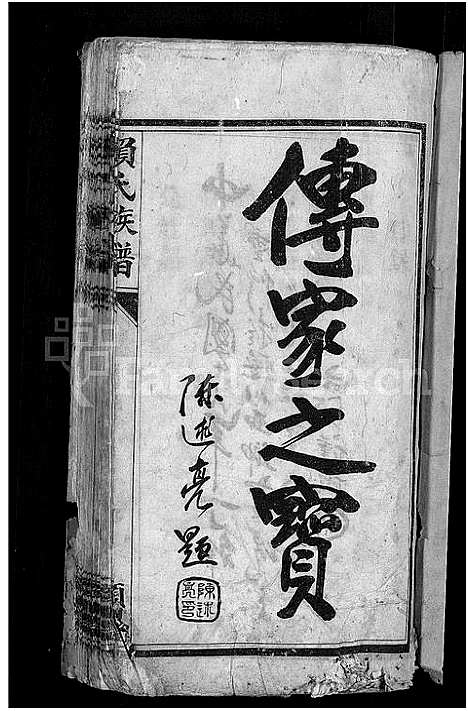 傳家之寶
陳述亮題
陳述亮印
賴氏族譜